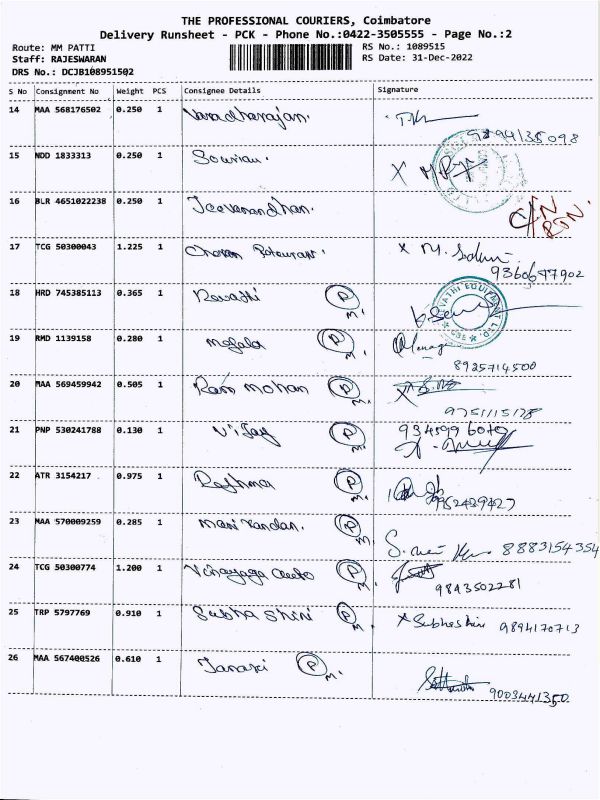 THE PROFESSIONAL COURIERS, Coimbatore
Delivery Runsheet - PCK - Phone No.:0422-3505555 - Page No.:2
Route: MM PATTI RS No.: 1089515
Staff: RAJESWARAN RS Date: 31-Dec-2022
DRS No.: DCJB108951502
S No Consignment No Weight PCS Consignee Details Signature
14 MAA 568176502 0.250 1 Varadharajan.
15 NDD 1833313 0.250 1
16 BLR 4651022238 0.250 1 Jeevanandhan.
17 TCG 50300043 1.225 1 x M.
9360677902
18 HRD 745385113 0.365 1 Revathi P M.
19 RMD 1139158 0.280 1 P M.
8925714500
20 MAA 569459942 0.505 1 Ram mohan P M.
9751115178
21 PNP 530241788 0.130 1 Vijay P M.
22 ATR 3154217 0.975 1 Reshma P M.
23 MAA 570009259 0.285 1 Manikandan. P M.
8883154354
24 TCG 50300774 1.200 1 Vinayaga Auto P M.
9843502281
25 TRP 5797769 0.910 1 Subha shini P M. x Subhashini 9894170713
26 MAA 567400526 0.610 1 Janaki P M.
9003441350